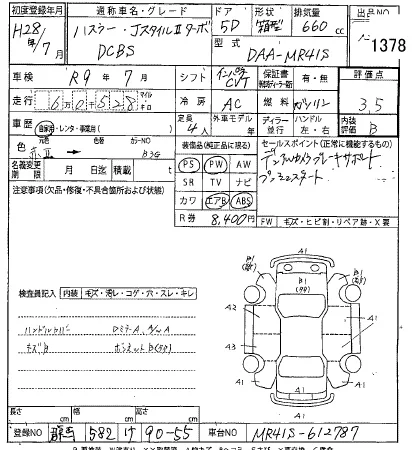 初度登録年月 通称車名・グレード ドア 形状 排気量 出品NO
H28年/7月 ハスラー・JスタイルⅡターボ 5D 箱型 660cc 1378
DCBS 型式 DAA-MR41S
車検 R9年7月 シフト インパネCVT 保証書 有・無 評価点
走行 6万0千528 マイル キロ 冷房 AC 燃料 ガソリン 3.5
車歴 自家用・レンタ・事業用( ) 定員 4人 外車モデル 年 ディーラー 並行 ハンドル 左・右 内装評価 B
色 元色 カラーNO B3G
名義変更期限 月 日迄 積載 t
装備品(純正品に限る) セールスポイント(正常に機能するもの)
PS PW AW デュアルカメラブレーキサポート
SR TV ナビ プッシュスタート
カワ エアB ABS
R券 8,400円
FW キズ・ヒビ割・リペア跡・X要
注意事項(欠品・修復・不具合箇所および状態)
検査員記入 内装 キズ・汚レ・コゲ・穴・スレ・キレ
キズB
A1
B1
A1
B1
A2
A1
A3
A1
A1
A1
A1
長さ cm 幅 cm 高さ cm
登録NO 群馬 582 け 90-55 車台NO MR41S-612787